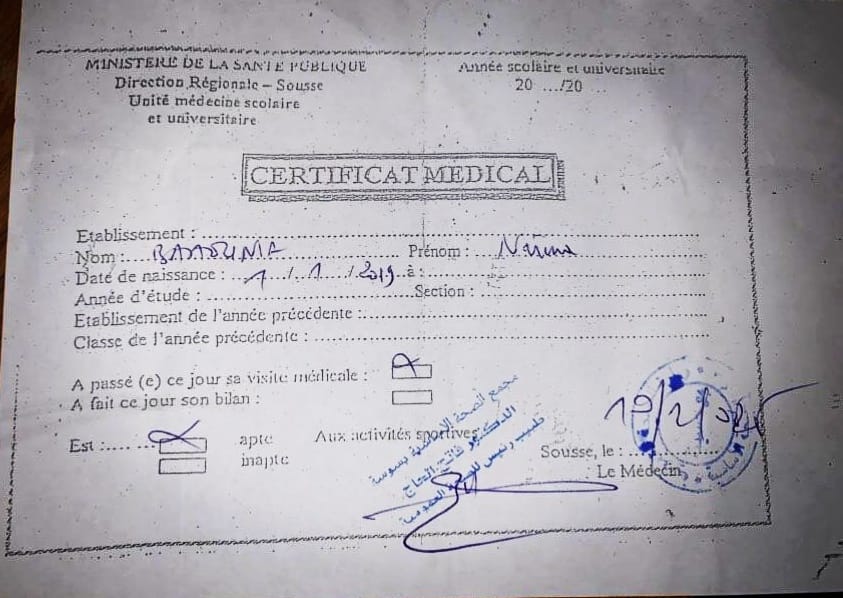 MINISTERE DE LA SANTE PUBLIQUE
Direction Régionale – Sousse
Unité médecine scolaire
et universitaire
Année scolaire et universitaire
20 .../20 ...
CERTIFICAT MEDICAL
Etablissement :
Nom : Prénom :
Date de naissance : 1 / 1 / 2019 à :
Année d'étude : Section :
Etablissement de l'année précédente :
Classe de l'année précédente :
A passé (e) ce jour sa visite médicale :
A fait ce jour son bilan :
Est : apte Aux activités sportives
inapte
مجمع الصحة الأساسية بسوسة
الدكتور فاتح الحاج
طبيب رئيس للصحة العمومية
Sousse, le :
Le Médecin